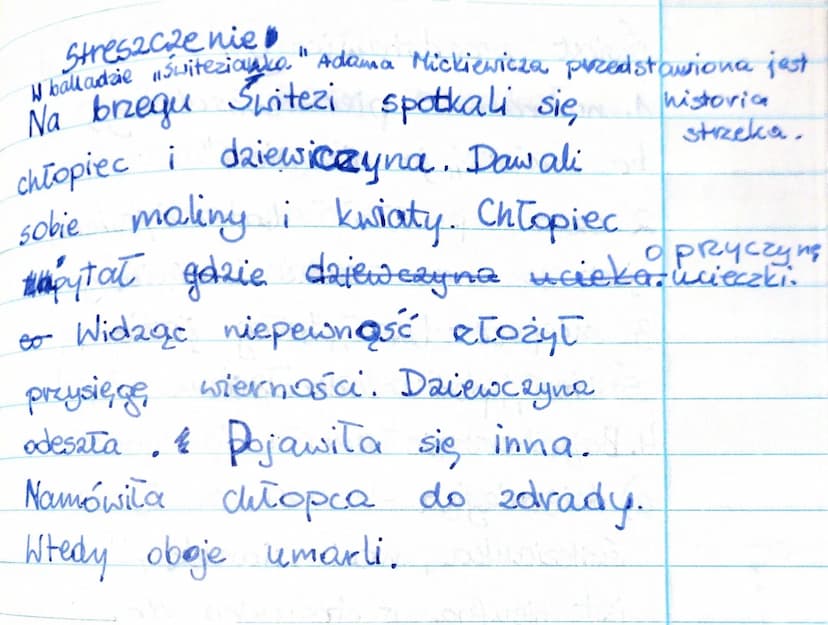 Streszczenie
W balladzie "Świtezianka" Adama Mickiewicza przedstawiona jest
historia
strzelca.
Na brzegu Świtezi spotkali się
chłopiec i dziewczyna. Dawali
sobie maliny i kwiaty. Chłopiec
pytał gdzie dziewczyna ucieka. o pryczynę
ucieczki.
co Widząc niepewnąść złożył
przysięgę wierności. Dziewczyna
odeszła. Pojawiła się inna.
Namówiła chłopca do zdrady.
Wtedy oboje umarli.